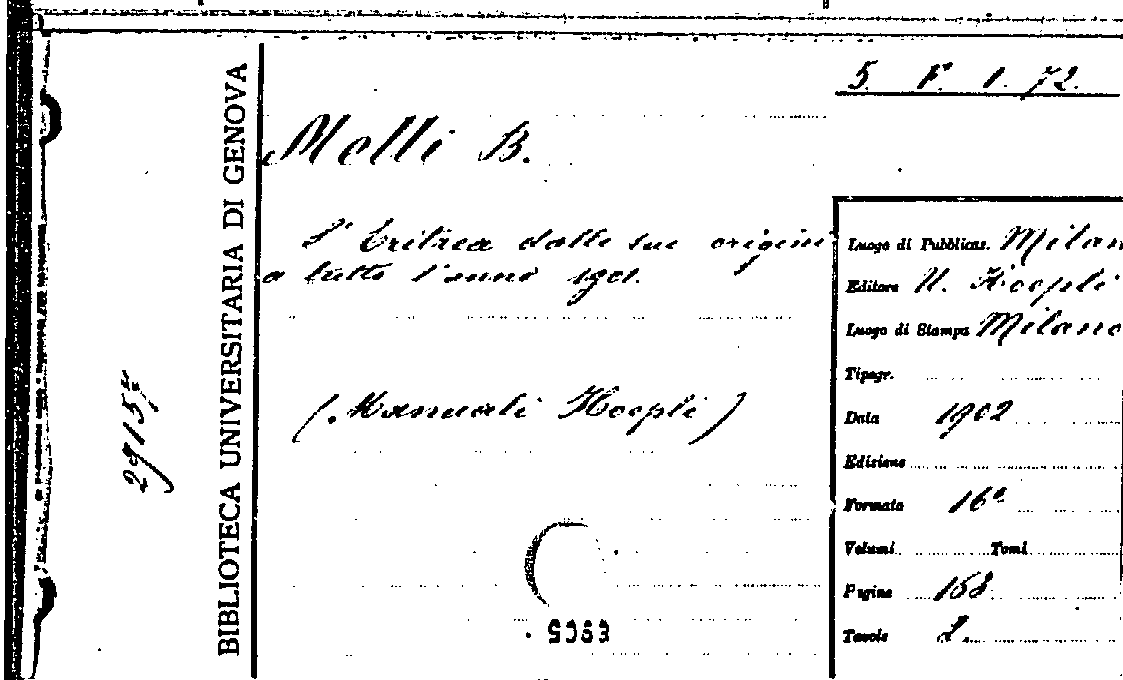 5. F. 1. 72.
Melli B.
L'Eritrea dalle sue origini
a tutto l'anno 1901.
(Manuali Hoepli)
BIBLIOTECA UNIVERSITARIA DI GENOVA
29157
Luogo di Pubblicas. Milan
Editore U. Hoepli
Luogo di Stampa Milano
Tipogr.
Data 1902
Edizione
Formato 16°
Volumi Tomi
Pagine 158
Tavole 2.